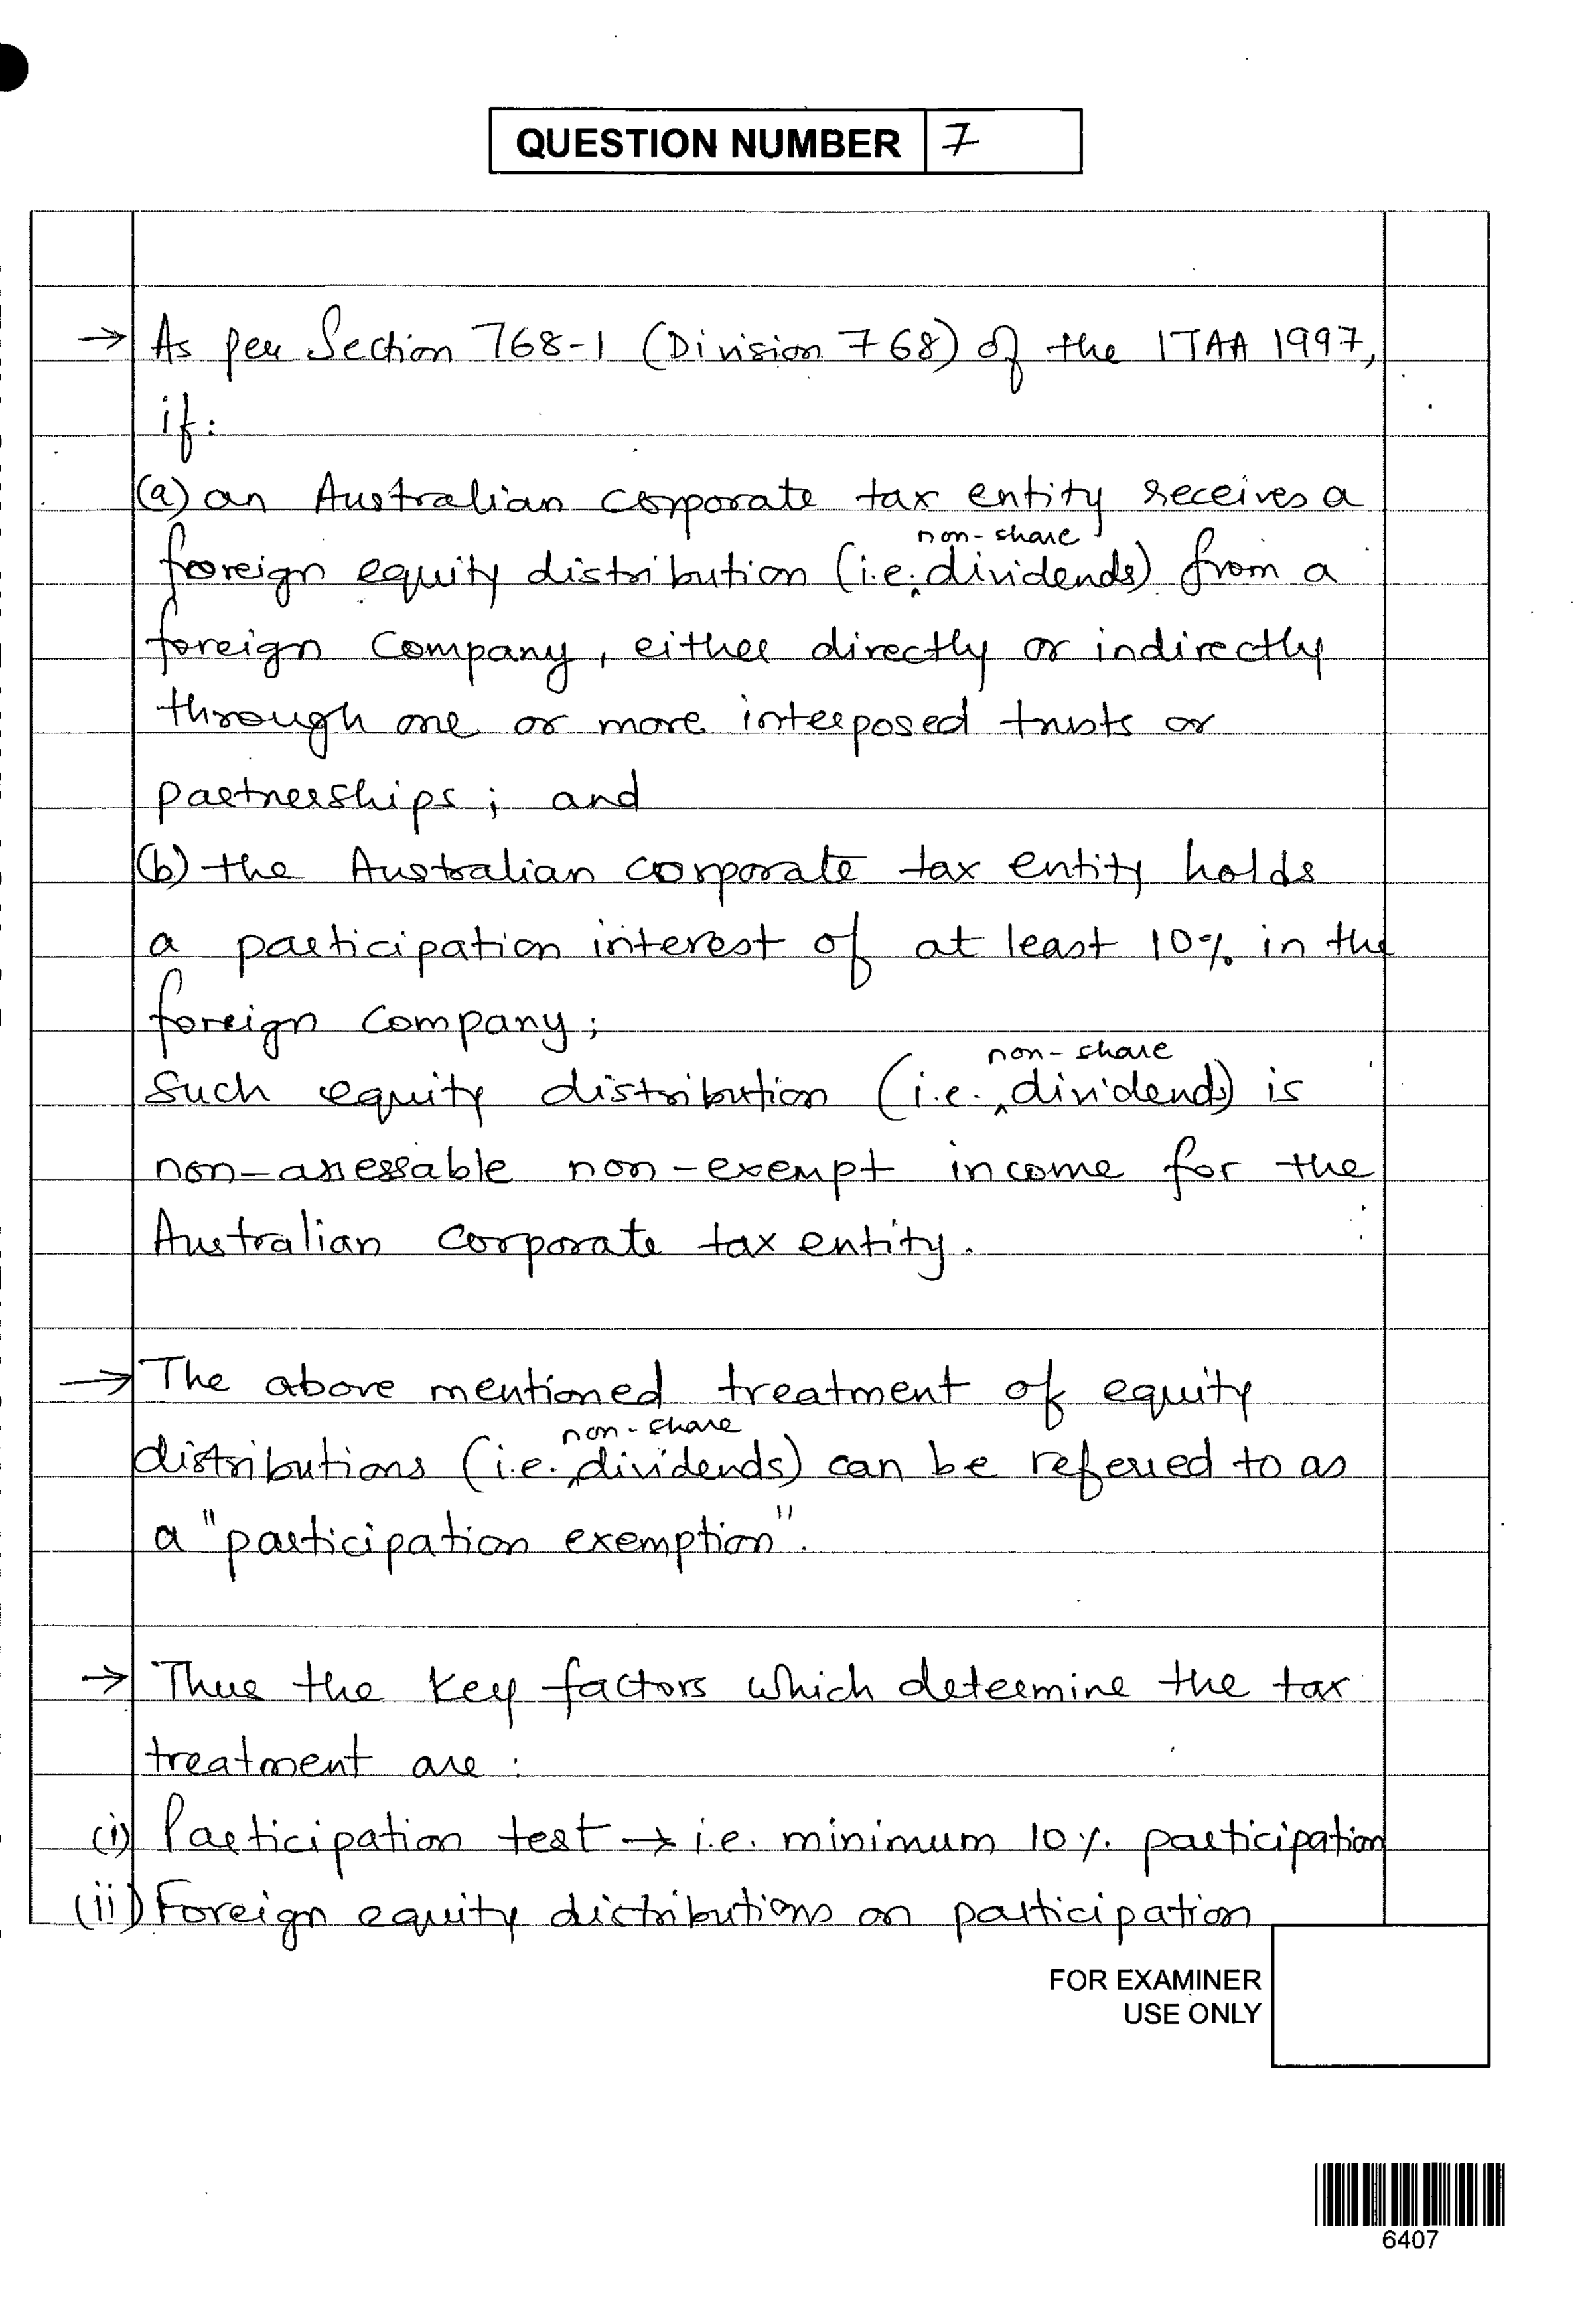 QUESTION NUMBER 7
→ As per Section 768-1 (Division 768) of the ITAA 1997,
if:
(a) an Australian corporate tax entity receives a
non-share
foreign equity distribution (i.e. ‸dividends) from a
foreign Company, either directly or indirectly
through one or more interposed trusts or
partnerships; and
(b) the Australian corporate tax entity holds
a participation interest of at least 10% in the
foreign Company;
non-share
Such equity distribution (i.e. ‸dividends) is
non-assessable non-exempt income for the
Australian corporate tax entity.
→ The above mentioned treatment of equity
non-share
distributions (i.e. ‸dividends) can be referred to as
a "participation exemption".
→ Thus the key factors which determine the tax
treatment are:
(i) Participation test → i.e. minimum 10% participation
(ii) Foreign equity distributions on participation
FOR EXAMINER
USE ONLY
6407